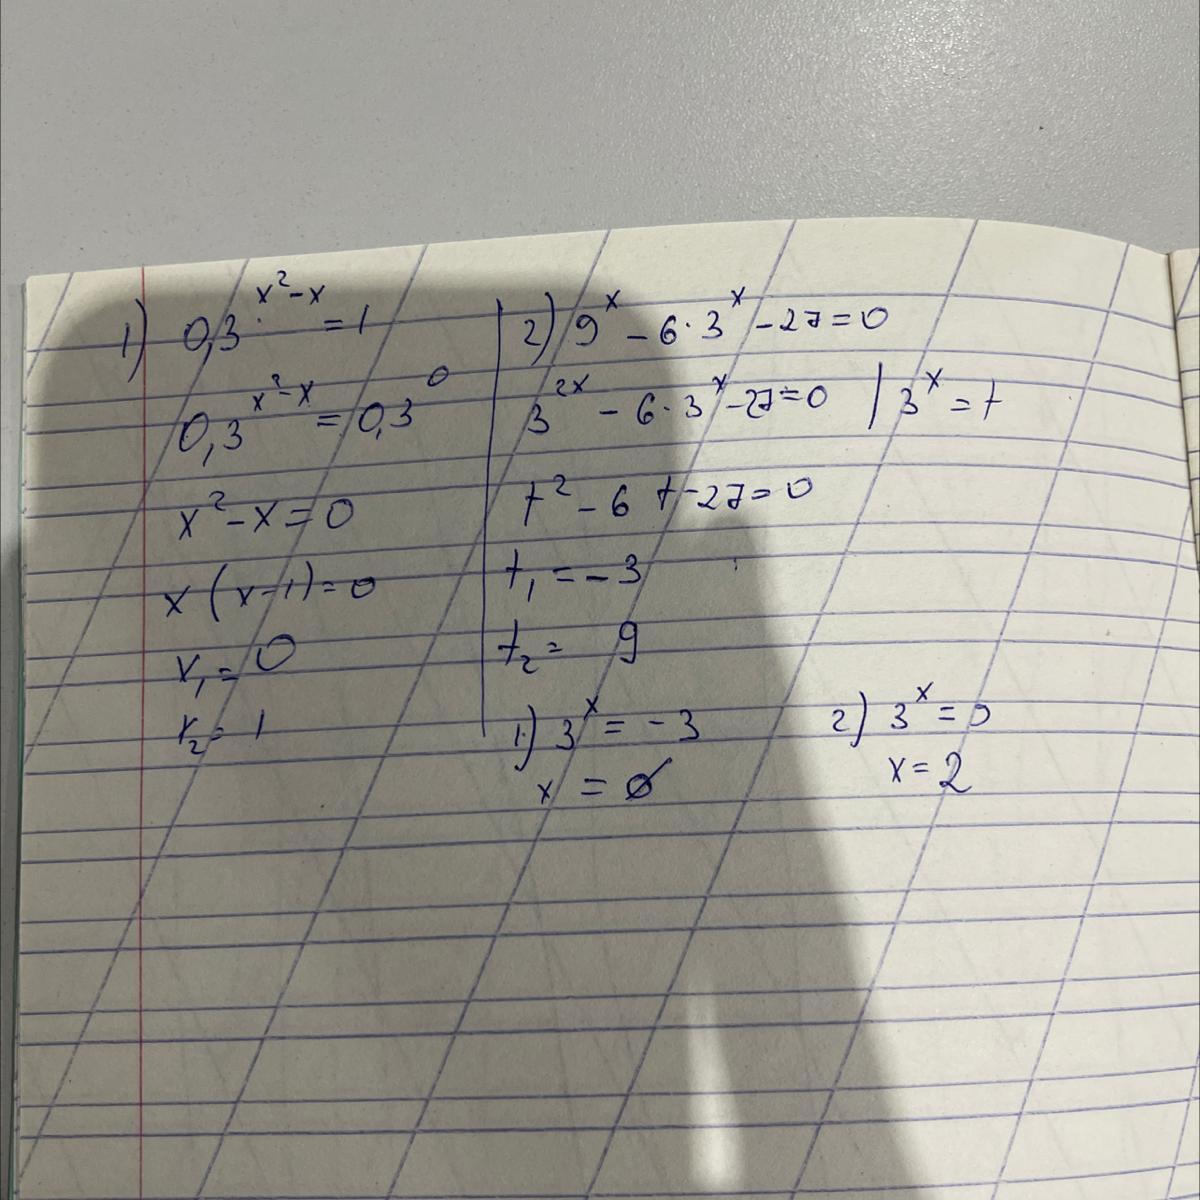 1) 0,3^{x²-x} = 1
0,3^{x²-x} = 0,3^0
x² - x = 0
x (x-1) = 0
x₁ = 0
x₂ = 1
2) 9^x - 6·3^x - 27 = 0
3^{2x} - 6·3^x - 27 = 0 | 3^x = t
t² - 6t - 27 = 0
t₁ = -3
t₂ = 9
1) 3^x = -3
x = ∅
2) 3^x = 9
x = 2